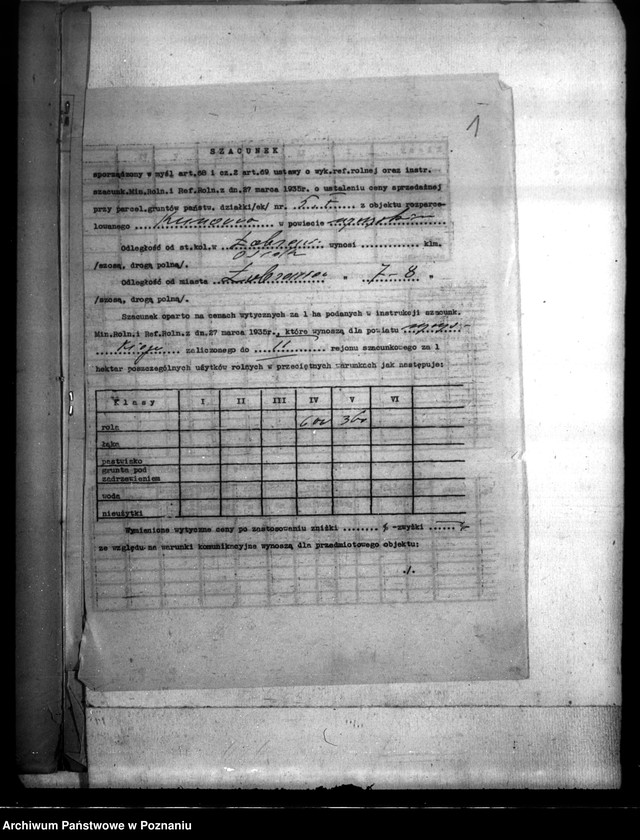 1
SZACUNEK
sporządzony w myśl art.58 i cz.2 art.59 ustawy o wyk.ref.rolnej oraz instr.
szacunk.Min.Roln.i Ref.Roln.z dn.27 marca 1935r. o ustaleniu ceny sprzedażnej
przy parcel.gruntów państw. działki/ek/ nr. z objektu rozparce-
lowanego Kunowo w powiecie
Odległość od st.kol.w wynosi ........... klm.
/szosą, drogą polną/.
Odległość od miasta " 7-8 "
/szosą, drogą polną/.
Szacunek oparto na cenach wytycznych za 1 ha podanych w instrukcji szacunk.
Min.Roln.i Ref.Roln.z dn.27 marca 1935r., które wynoszą dla powiatu
zaliczonego do II rejonu szacunkowego za 1
hektar poszczególnych użytków rolnych w przeciętnych warunkach jak następuje:
Klasy I II III IV V VI
rola 600 360
łąka
pastwisko
grunta pod
zadrzewieniem
woda
nieużytki
Wymienione wytyczne ceny po zastosowaniu zniżki ........ % -zwyżki ...... %
ze względu na warunki komunikacyjne wynoszą dla przedmiotowego objektu:
./.
Archiwum Państwowe w Poznaniu